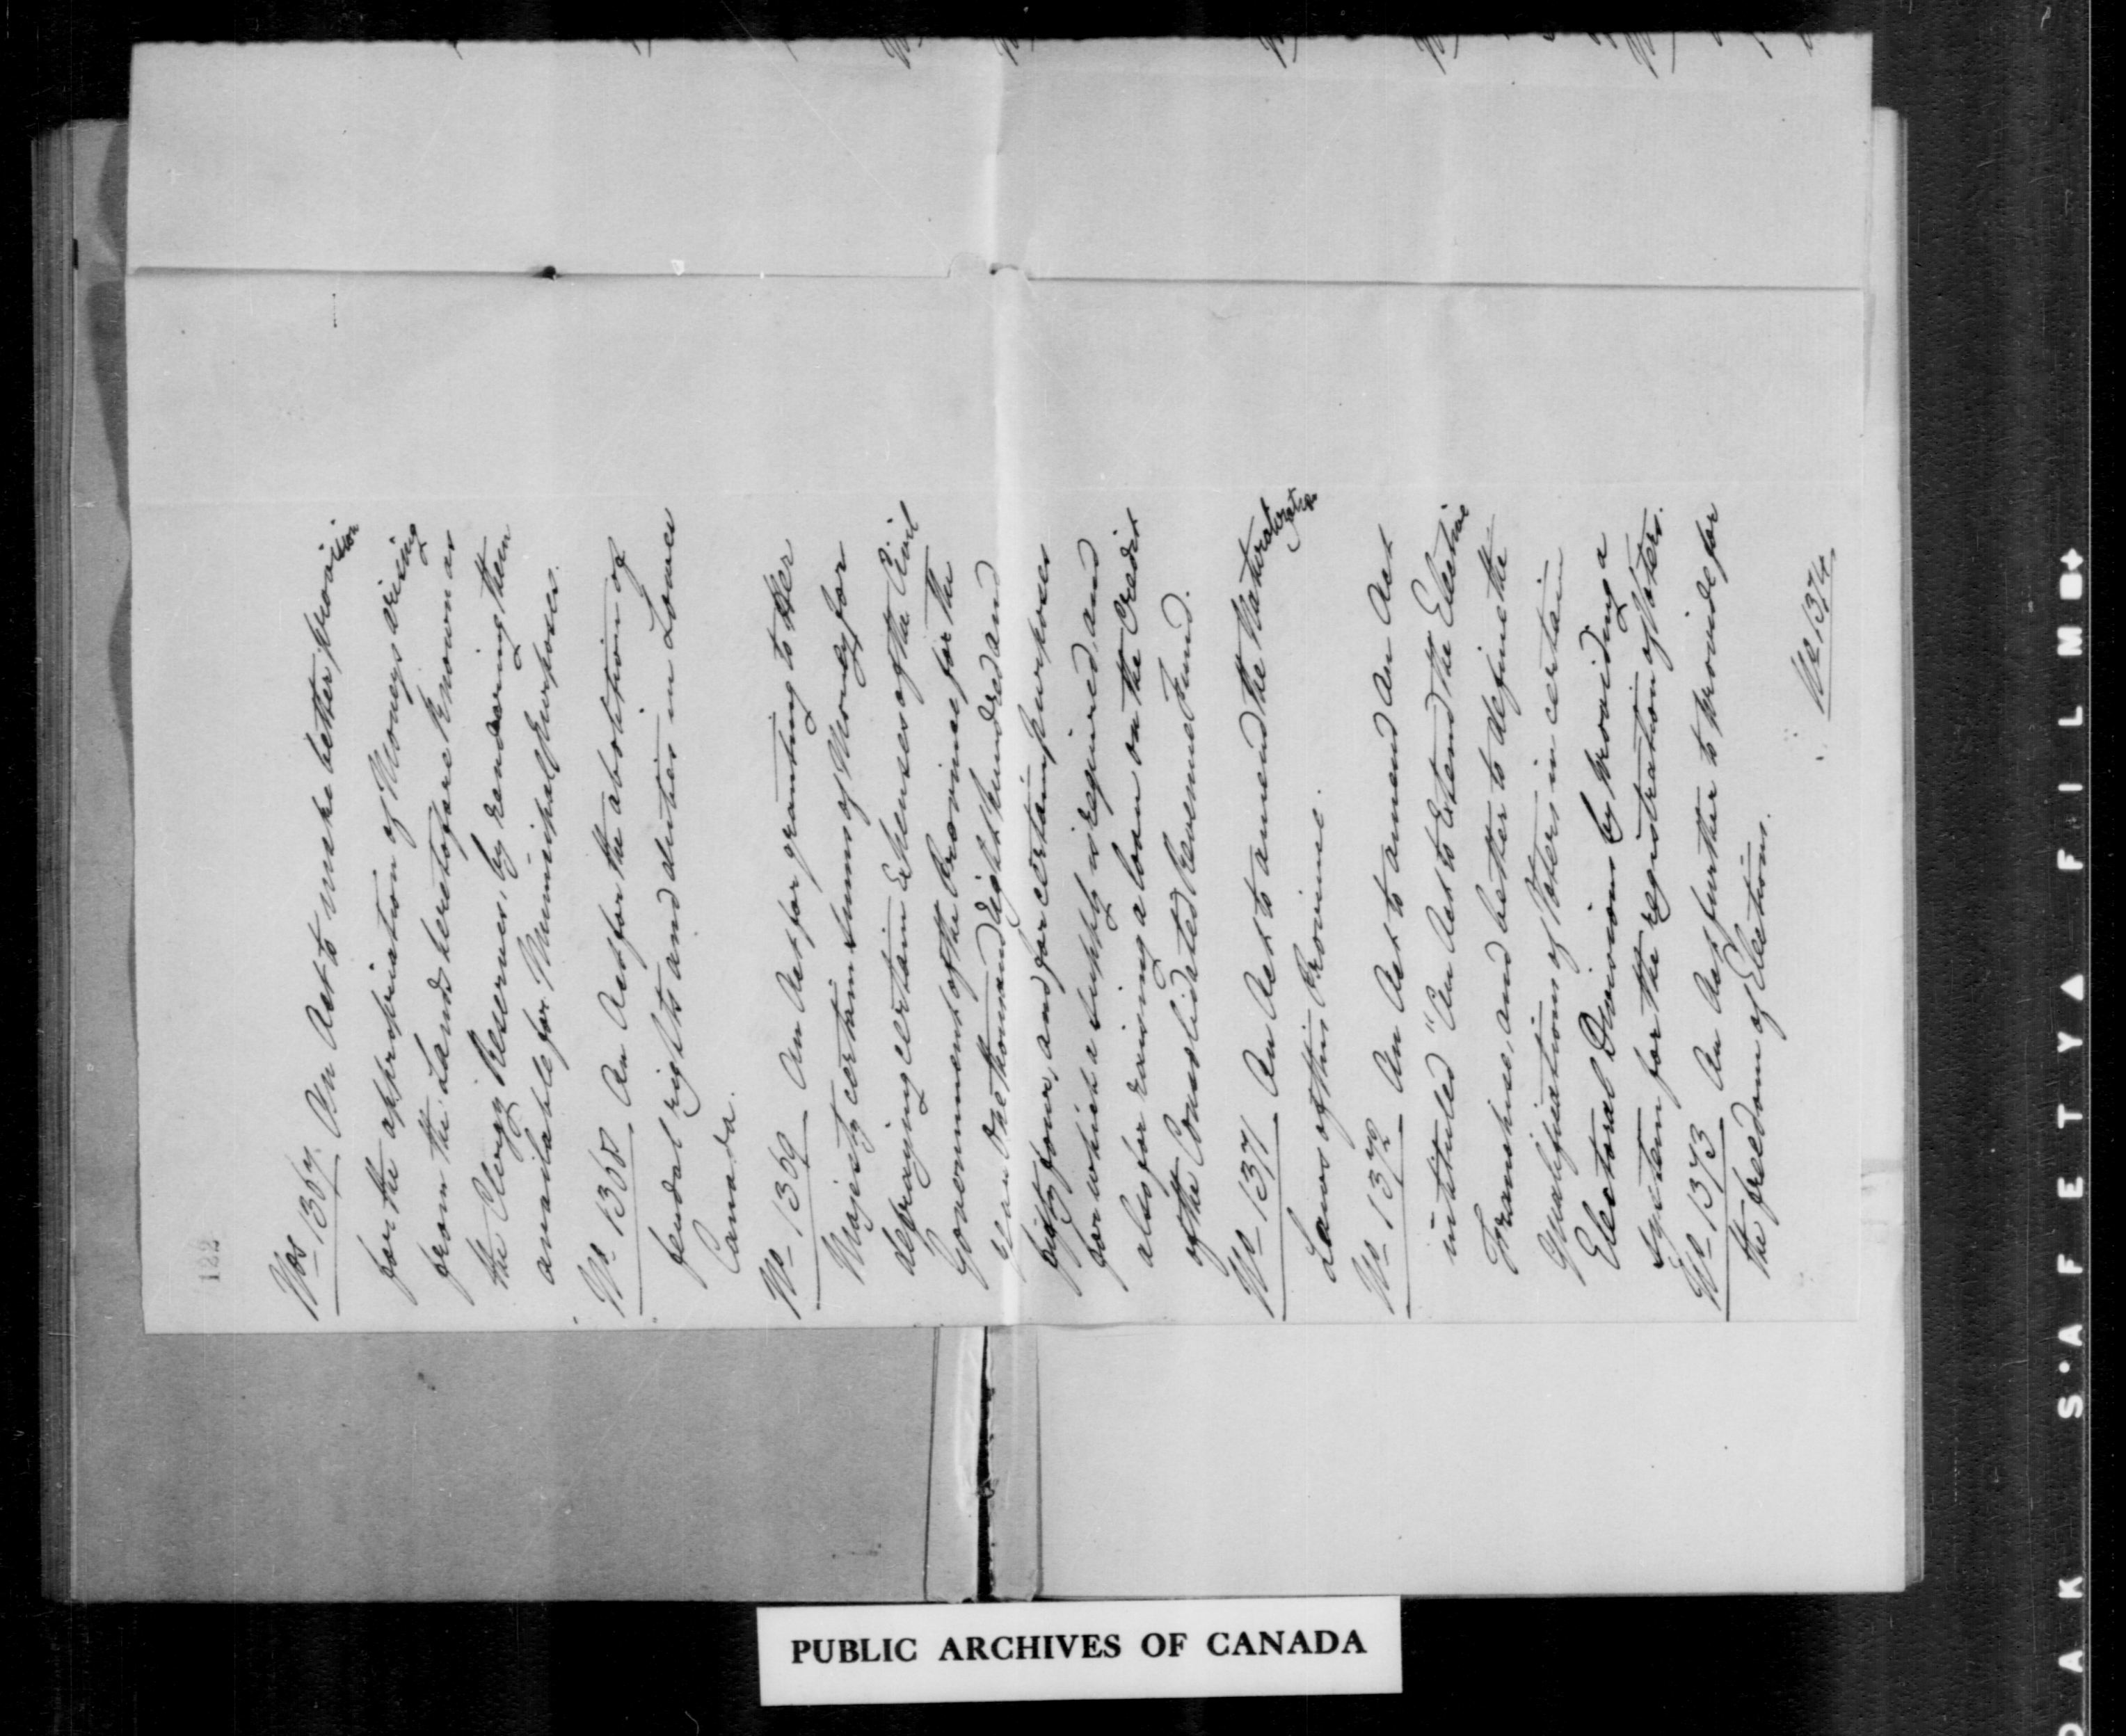 122
Nos 1367. An Act to make better provision
for the appropriation of Moneys arising
from the Lands heretofore known as
the Clergy Reserves, by rendering them
available for Municipal purposes.
No 1368 An Act for the abolition of
feudal rights and duties in Lower
Canada.
No 1369 An Act for granting to Her
Majesty certain sums of Money for
defraying certain Expenses of the Civil
Government of the Province for the
year One thousand Eight hundred and
fifty four, and for certain purposes
for which a supply is required, and
also for raising a loan on the Credit
of the Consolidated Revenue Fund.
No 1371 An Act to amend the Naturalization
Laws of this Province.
No 1372 An Act to amend An Act
intituled "An Act to Extend the Elective
Franchise, and better to define the
Qualifications of Voters in certain
Electoral Divisions by providing a
system for the registration of Voters.
No 1373 An Act further to provide for
the freedom of Elections.
No 1374
PUBLIC ARCHIVES OF CANADA
D A K S'A F E T Y ▲ F I L M